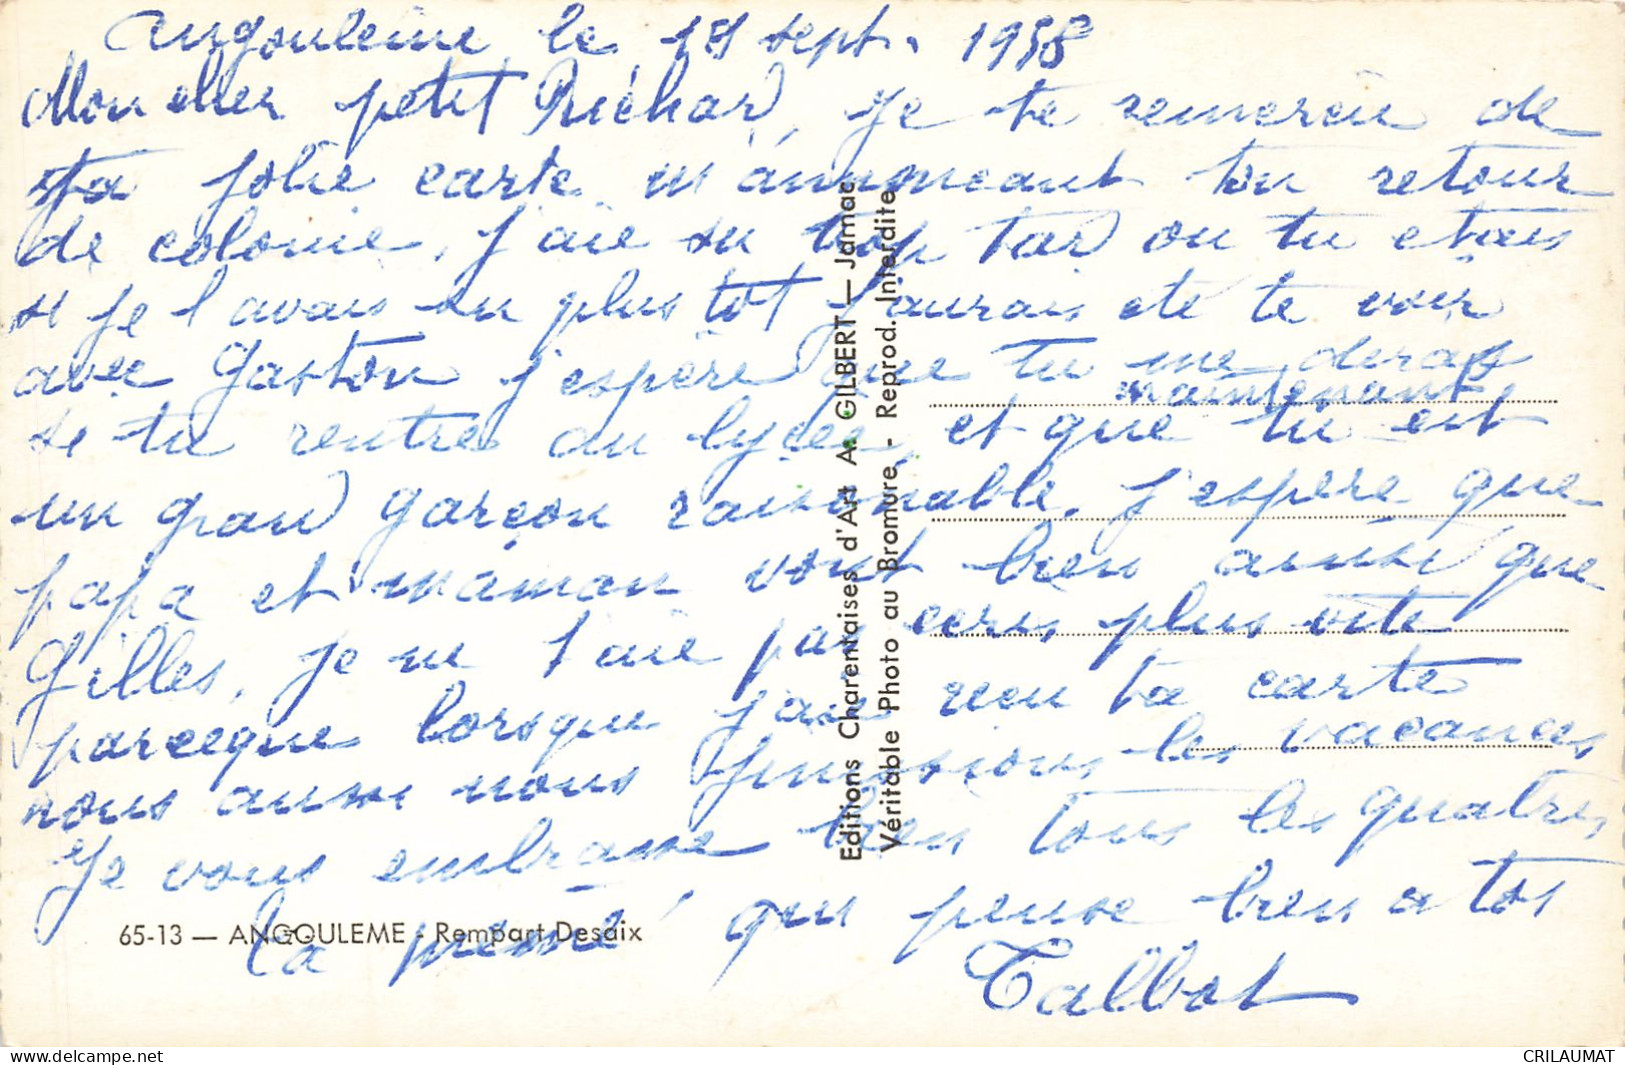 Angouleme le 19 sept. 1958
Mon cher petit Richard, Je te remercie de
ta jolie carte m'annoncant ton retour
de colonie, j'aie su trop tard ou tu etais
si je l'avais su plus tot j'aurais eté te voir
avec Gaston j'espère que tu me deras
maintenant
se tu rentres au lycee, et que tu est
un grand garçon raisonable. J'espère que
papa et maman vont bien ainsi que
Gilles, Je ne t'aie pas ecris plus vite
parceque lorsque j'aie recu ta carte
nous aussi nous finissions les vacances
Je vous embrasse bien tous les quatres
la qui pense bien a toi
Talbot
65-13 — ANGOULEME - Rempart Desaix
Editions Charentaises d'Art A. GILBERT — Jarnac
Véritable Photo au Bromure - Reprod. Interdite
delcampe.net
CRILAUMAT